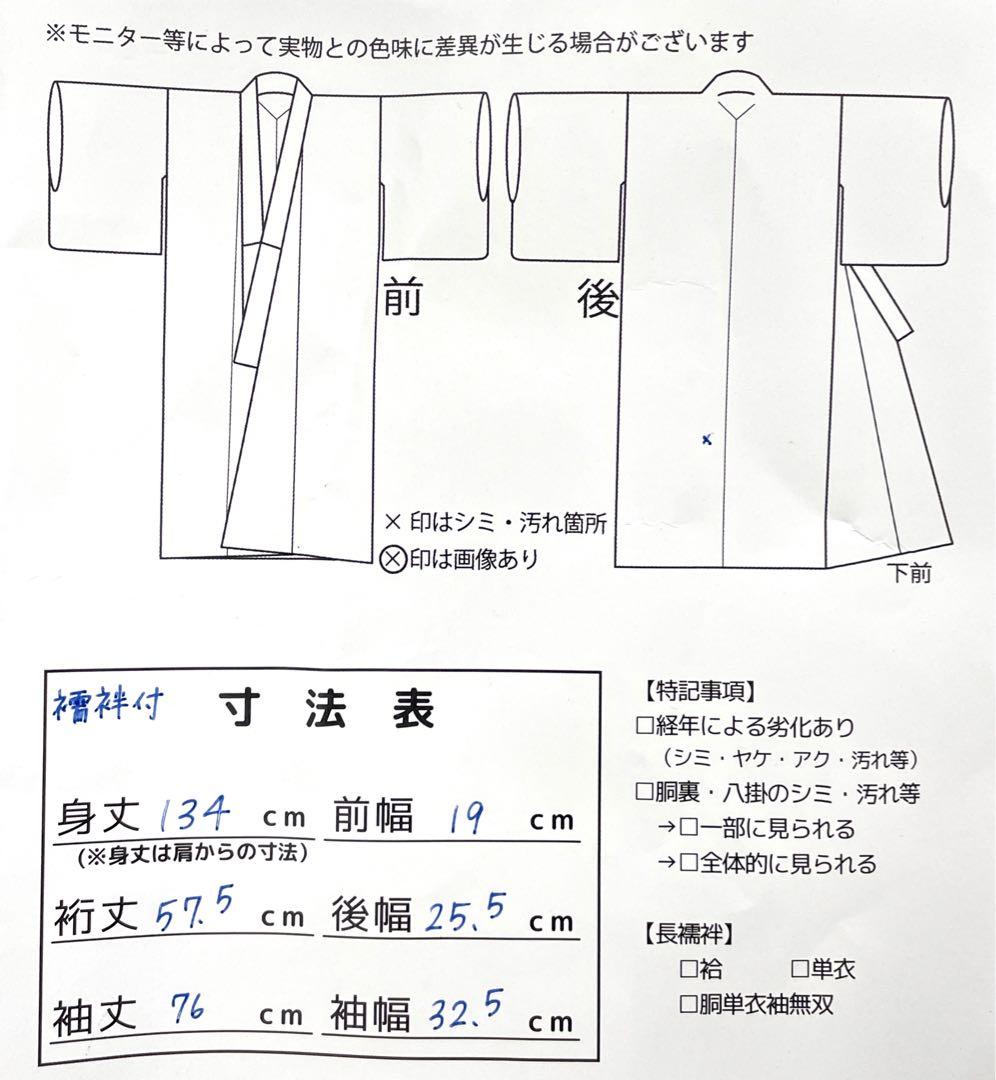 ※モニター等によって実物との色味に差異が生じる場合がございます
前
後
×
×印はシミ・汚れ箇所
Ⓧ印は画像あり
下前
襦袢付 寸法表
身丈 134 cm 前幅 19 cm
(※身丈は肩からの寸法)
裄丈 57.5 cm 後幅 25.5 cm
袖丈 76 cm 袖幅 32.5 cm
【特記事項】
□経年による劣化あり
（シミ・ヤケ・アク・汚れ等）
□胴裏・八掛のシミ・汚れ等
→□一部に見られる
→□全体的に見られる
【長襦袢】
□袷 □単衣
□胴単衣袖無双